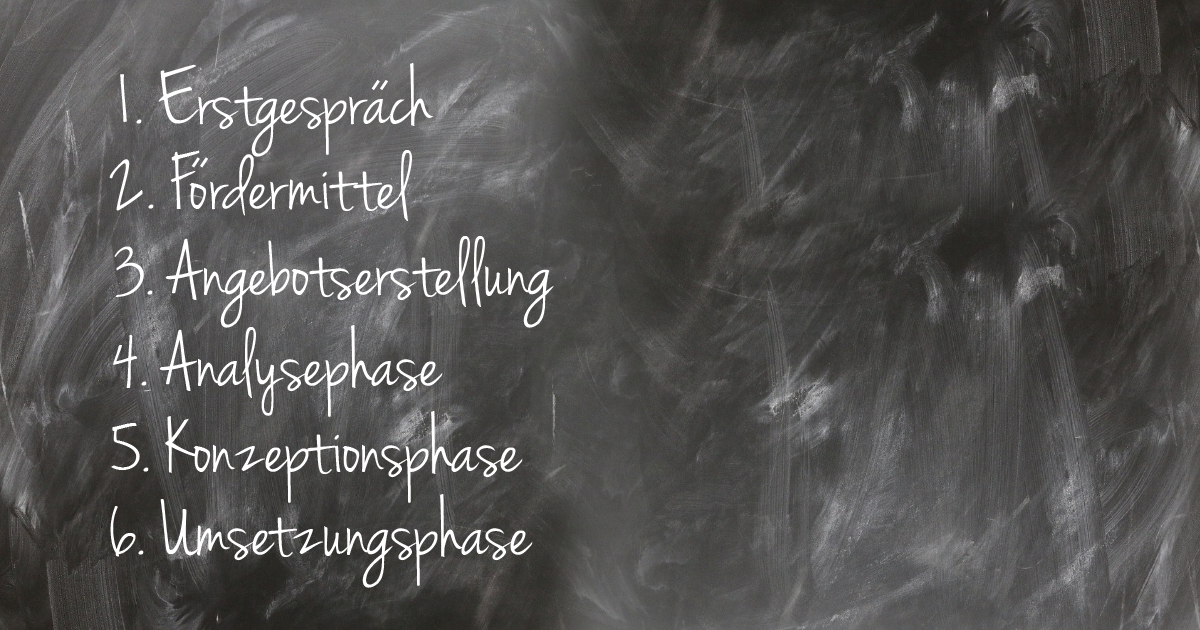 1. Erstgespräch
2. Fördermittel
3. Angebotserstellung
4. Analysephase
5. Konzeptionsphase
6. Umsetzungsphase